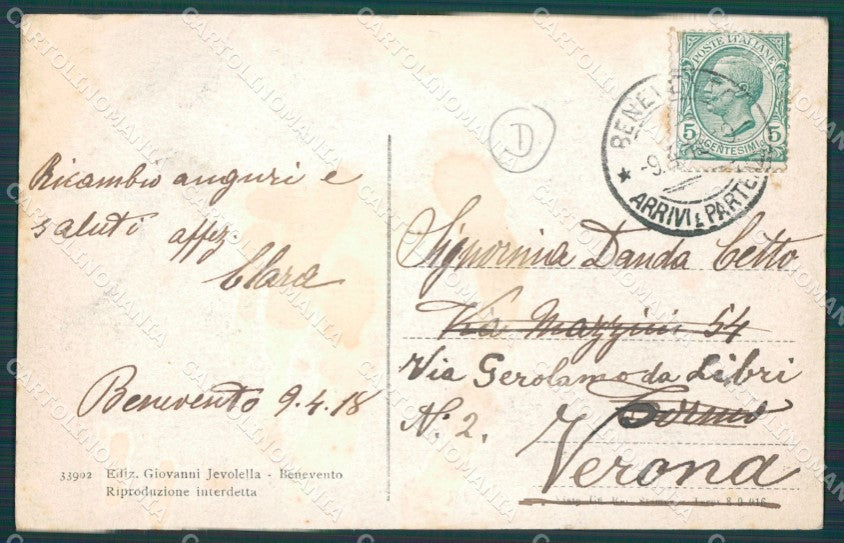 Ricambio auguri e
saluti affez.
Clara
Benevento 9.4.18
33902 Ediz. Giovanni Jevolella - Benevento
Riproduzione interdetta
D
POSTE ITALIANE
5 CENTESIMI 5
ARRIVI E PARTE
Signorina Danda Cetto
Via Mazzini 54
Via Gerolamo da Libri
N. 2.
Verona
CARTOLINOMANIA